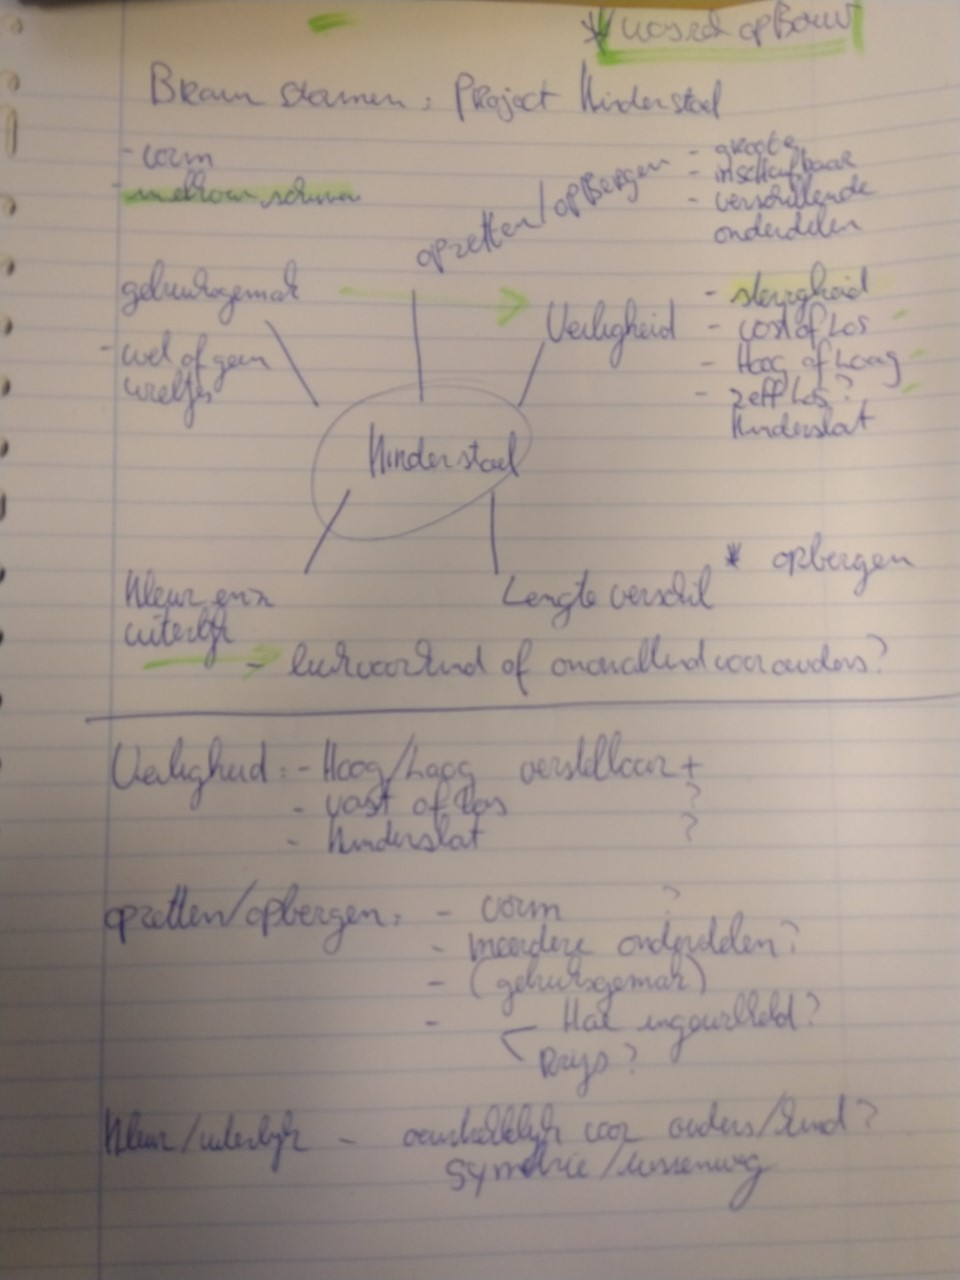 * opbouw
Brain stormen: Project Kinderstoel
- vorm
opzetten/opbergen
- grootte
- inschuifbaar
- verschillende
onderdelen
gebruiksgemak
Veiligheid
- stevigheid
- vast of los
- Hoog of Laag
- zelf los?
Kinderslot
- wel of geen
wieltjes
Kinderstoel
Kleur en
uiterlijk
Lengte verschil
* opbergen
- leuk voor kind of onopvallend voor ouders?
Veiligheid: - Hoog/Laag verstelbaar +
- vast of los ?
- Kinderslot ?
opzetten/opbergen: - vorm ?
- meerdere onderdelen?
- (gebruiksgemak)
- Hoe ingewikkeld?
Prijs?
Kleur/uiterlijk - aantrekkelijk voor ouders/kind?
symetrie